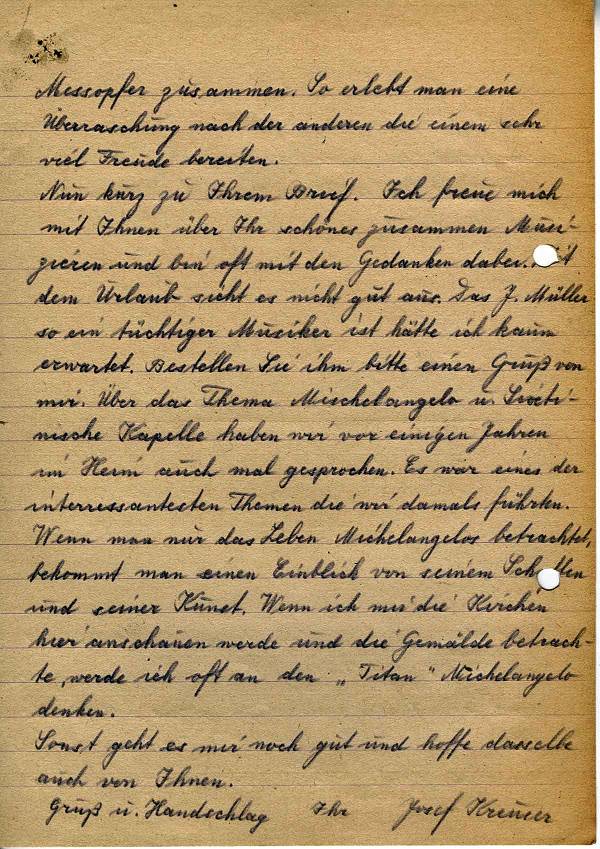 Messopfer zusammen. So erlebt man eine
Überraschung nach der anderen die einem sehr
viel Freude bereiten.
Nun kurz zu Ihrem Brief. Ich freue mich
mit Ihnen über Ihr schönes zusammen Musi-
zieren und bin oft mit den Gedanken dabei. Mit
dem Urlaub sieht es nicht gut aus. Das J. Müller
so ein tüchtiger Musiker ist hätte ich kaum
erwartet. Bestellen Sie ihm bitte einen Gruß von
mir. Über das Thema Mischelangelo u. Sixti-
nische Kapelle haben wir vor einigen Jahren
im Heim auch mal gesprochen. Es war eines der
interressantesten Themen die wir damals führten.
Wenn man nur das Leben Michelangelos betrachtet,
bekommt man einen Einblick von seinem Schaffen
und seiner Kunst. Wenn ich mir die Kirchen
hier anschauen werde und die Gemälde betrach-
te, werde ich oft an den „Titan“ Michelangelo
denken.
Sonst geht es mir noch gut und hoffe dasselbe
auch von Ihnen.
Gruß u. Handschlag Ihr Josef Kreuser